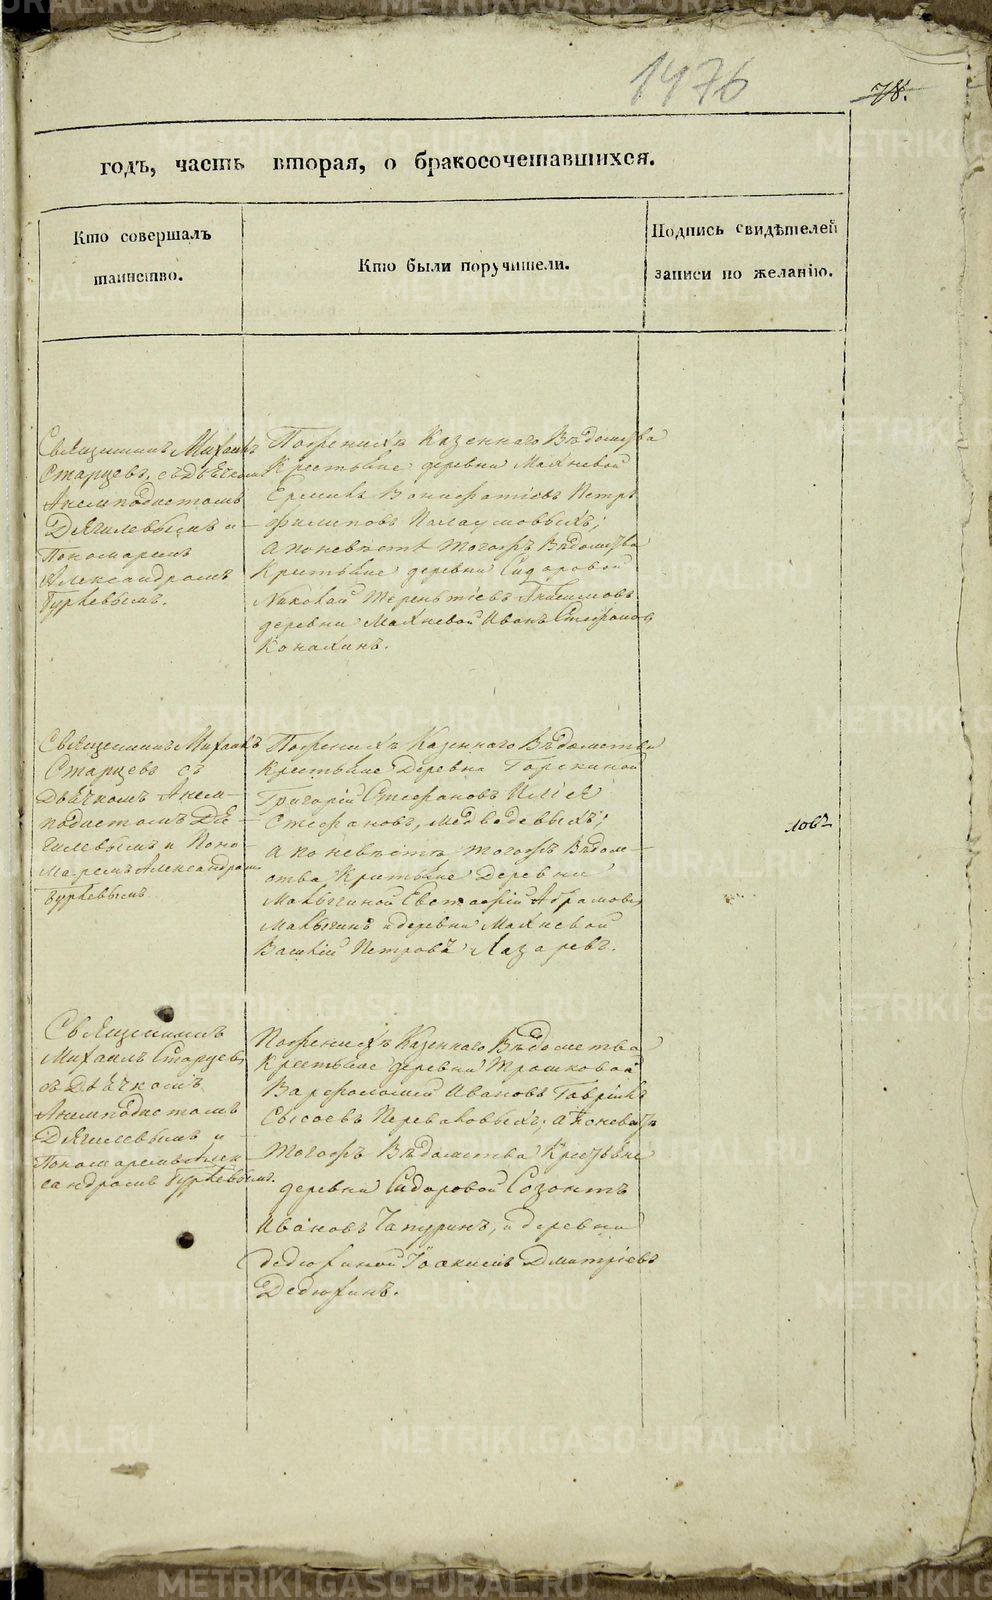 1476
78.
годъ, часть вторая, о бракосочетавшихся.
Кто совершалъ
таинство.
Кто были поручители.
Подпись свидѣтелей
записи по желанію.
Священникъ Михаилъ
Старцевъ, съ дьячкомъ
Анемподистомъ
Дягилевымъ и
Пономаремъ
Александромъ
Гуркевымъ.
По женихѣ Казеннаго Вѣдомства
Крестьяне деревни Махневой
Еремей Вонифатіевъ Петръ
Филиповъ
а по невѣстѣ тогожъ Вѣдомства
Крестьяне деревни Сидоровой
Николай Терентіевъ
деревни Махневой Иванъ Стефановъ
Конахинъ.
Священникъ Михаилъ
Старцевъ съ
Дьячкомъ Анем-
подистомъ Дя-
гилевымъ и Поно
маремъ Александромъ
Гуркевымъ
По женихѣ Казеннаго Вѣдомства
Крестьяне Деревни Горскиной
Григорій Стефановъ Илія
Стефановъ, Медведевыхъ;
а по невѣстѣ тогожъ Вѣдом-
ства Крестьяне Деревни
Евстафій Абрамовъ
и деревни Махневой
Василій Петровъ Лазаревъ.
ловъ
Священникъ
Михаилъ Старцевъ
съ Дьячкомъ
Анемподистомъ
Дягилевымъ и
Пономаремъ Алек
сандромъ Гуркевымъ.
По женихѣ Казеннаго Вѣдомства
Крестьяне деревни Трошковой
Варфоломей Ивановъ Гаврiилъ
Сысоевъ Переваловыхъ; а по невѣстѣ
тогожъ Вѣдомства Крестьяне
деревни Сидоровой Созонтъ
Ивановъ Чапуринъ, и деревни
Дедюхиной Іоакимъ Дмитріевъ
Дедюхинъ.
METRIKI.GASO-URAL.RU